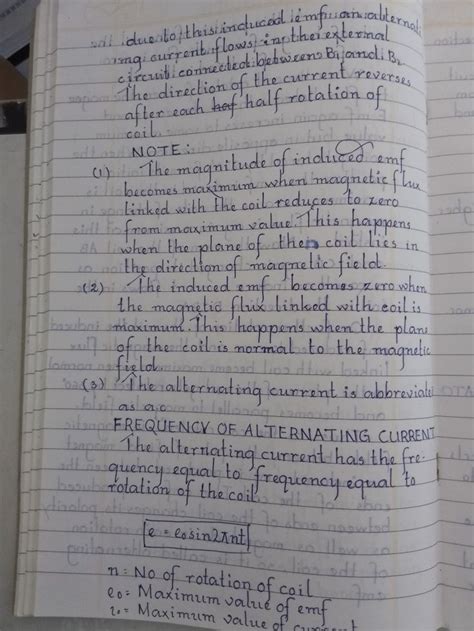 due to this induced emf, an alternati
ing current flows in the external
circuit connected between B₁ and B₂
The direction of the current reverses
after each half rotation of
coil.
NOTE:
(1) The magnitude of induced emf
becomes maximum when magnetic flux
linked with the coil reduces to zero
from maximum value. This happens
when the plane of the coil lies in
the direction of magnetic field.
(2) The induced emf becomes zero when
the magnetic flux linked with coil is
maximum. This happens when the plane
of the coil is normal to the magnetic
field.
(3) The alternating current is abbreviate
as a.c
FREQUENCY OF ALTERNATING CURRENT
The alternating current has the fre-
quency equal to frequency equal to
rotation of the coil
e = e₀ sin2πnt
n = No of rotation of coil
e₀ = Maximum value of emf
i₀ = Maximum value of current